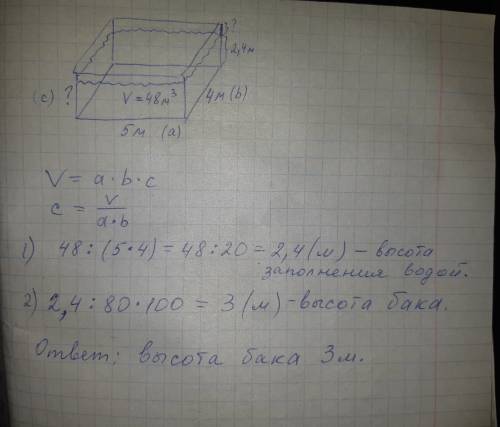 ?
2,4м
(c) ?
V = 48 м³
4м (b)
5м (a)
V = a · b · c
c = V / a · b
1) 48 : (5 · 4) = 48 : 20 = 2,4 (м) – высота
заполнения водой.
2) 2,4 : 80 · 100 = 3 (м) – высота бака.
Ответ: высота бака 3м.